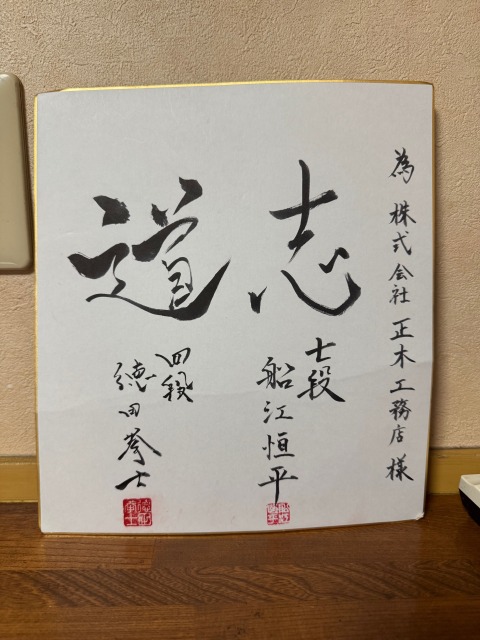 為 株式会社 正木工務店 様
志
七段
船江恒平
道
四段
徳田拳士